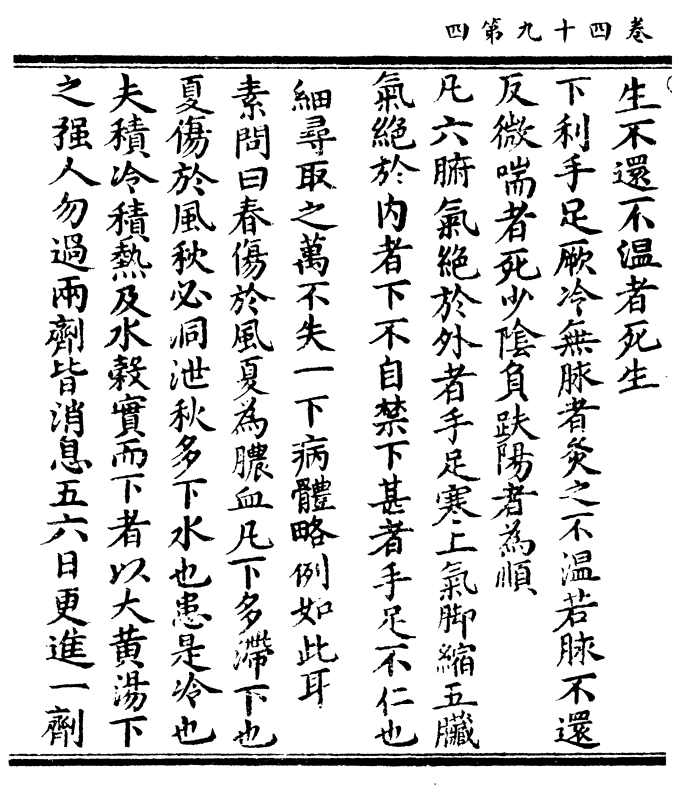 卷四十九第四
生不還不溫者死生
下利手足厥冷無脉者灸之不溫若脉不還
反微喘者死少陰負趺陽者為順
凡六腑氣絕於外者手足寒上氣脚縮五臟
氣絕於內者下不自禁下甚者手足不仁也
細尋取之萬不失一下病體略例如此耳
素問曰春傷於風夏為膿血凡下多滯下也
夏傷於風秋必洞泄秋多下水也患是冷也
夫積冷積熱及水穀實而下者以大黃湯下
之强人勿過兩劑皆消息五六日更進一劑